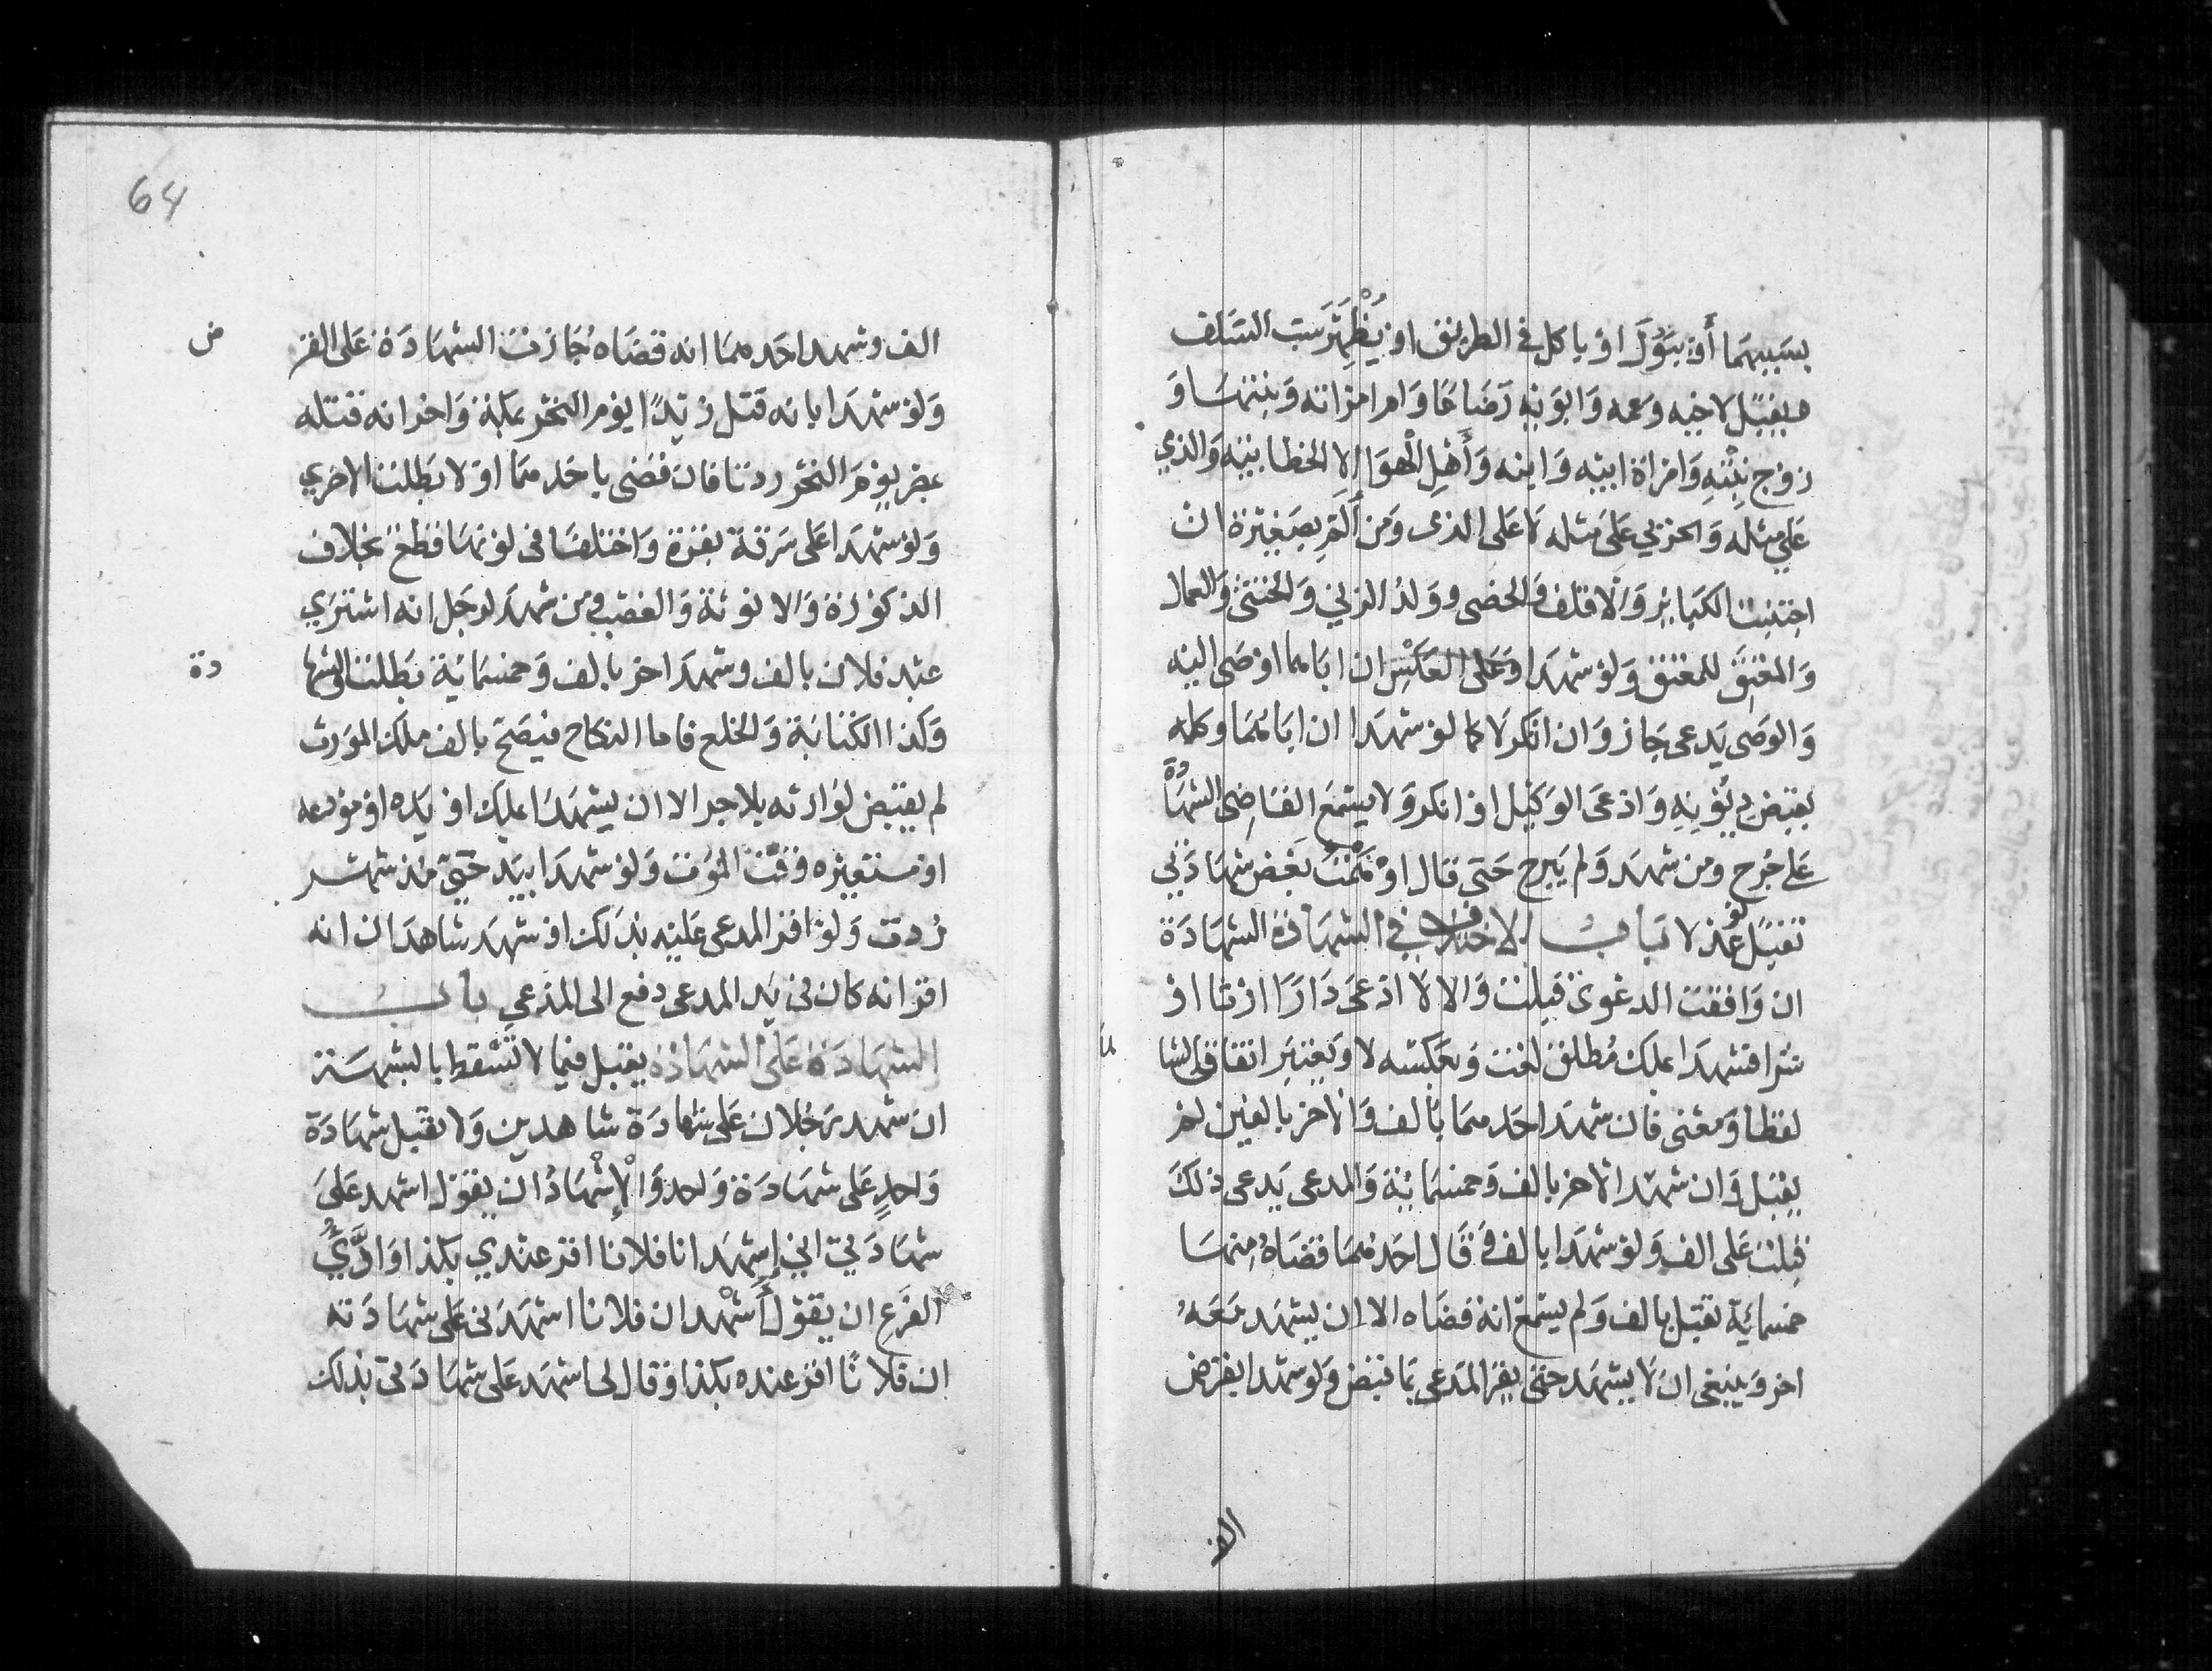 بسببهما أو يبول او ياكل في الطريق او يظهر سب السلف
ويقبل لاخيه وعمه وابويه رضاعا وام امراته وبنتها و
زوج بنته وامراة ابيه وابنه وأهل الهوا الا الخطابية والذمي
علي مثله والحربي على مثله لا على الذمى ومن ألم بصغيرة ان
اجتنب الكبائر والاقلف والخصى وولد الزني والخنثى والعمال
والمعتق للمعتق ولو شهدا وعلى العكس ان اباهما اوصى اليه
والوصى يدعى جاز وان انكر لا كما لو شهدا ان اباهما وكله
بقبض ديونه وادعى الوكيل او انكر ولا يسمع القاضى الشهادة
على جرح ومن شهد ولم يبرح حتى قال اوهمت بعض شهادتي
تقبل لو عدلا باب الاختلاف في الشهادة الشهادة
ان وافقت الدعوى قبلت والا لا ادعى دارا ارثا او
شرا فشهدا بملك مطلق لغت وبعكسه لا ويعتبر اتفاق الشا
لفظا ومعنى فان شهد احدهما بألف والاخر بالفين لم
يقبل وان شهد الاخر بالف وخمسمائة والمدعى يدعى ذلك
قبلت على الف ولو شهدا بالف وقال احدهما قضاه منها
خمسمائة تقبل بالف ولم يسمع انه قضاه الا ان يشهد معه
اخر وينبغى ان لا يشهد حتى يقر المدعى بما قبض ولو شهدا بقرض
الف
64
الف وشهد احدهما انه قضاه جازت الشهادة على القر
ض
ولو شهدا بانه قتل زيدا يوم النحر بمكة واخرانه قتله
بمصر يوم النحر ردتا فان قضى باحدهما اولا بطلت الاخري
ولو شهدا على سرقة بقرة واختلفا فى لونها قطع بخلاف
الذكورة والانوثة والغصب ومن شهد لرجل انه اشتري
عبد فلان بالف وشهد اخر بالف وخمسمائة بطلت الشها
دة
وكذا الكتابة والخلع فاما النكاح فيصح بالف ملك المورث
لم يقبض لوارثه بلا جر الا ان يشهدا بملك او يده او مودعه
او مستعيره وقت الموت ولو شهدا بيد حي مذ شهر
ردت ولو اقر المدعى عليه بذلك او شهد شاهدان انه
اقر انه كان فى يد المدعى دفع الى المدعي باب
الشهادة على الشهادة يقبل فيما لا تسقط بالشبهة
ان شهد رجلان على شهادة شاهدين ولا تقبل شهادة
واحد على شهادة واحد والإشهاد ان يقول اشهد على
شهادتي اني إشهد انا فلانا اقر عندي بكذا واديُ
الفرع ان يقول أشهد ان فلانا اشهدنى على شهادته
ان فلانا اقر عنده بكذا وقال لى اشهد على شهادتى بذلك